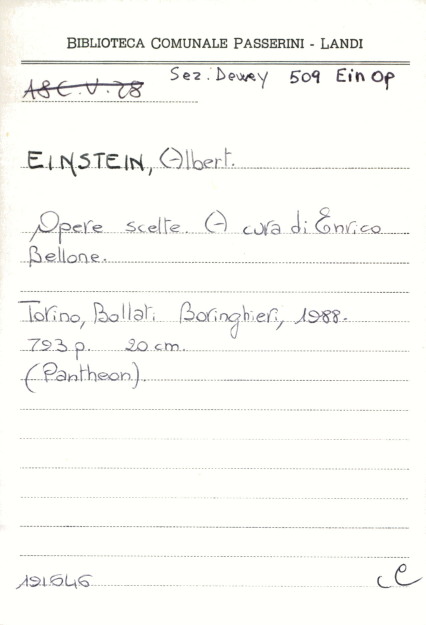 BIBLIOTECA COMUNALE PASSERINI - LANDI
Sez. Dewey 509 Ein Op
A8C.V.28
EINSTEIN, Albert.
Opere scelte. A cura di Enrico
Bellone.
Torino, Bollati Boringhieri, 1988.
793 p. 20 cm.
(Pantheon).
191646